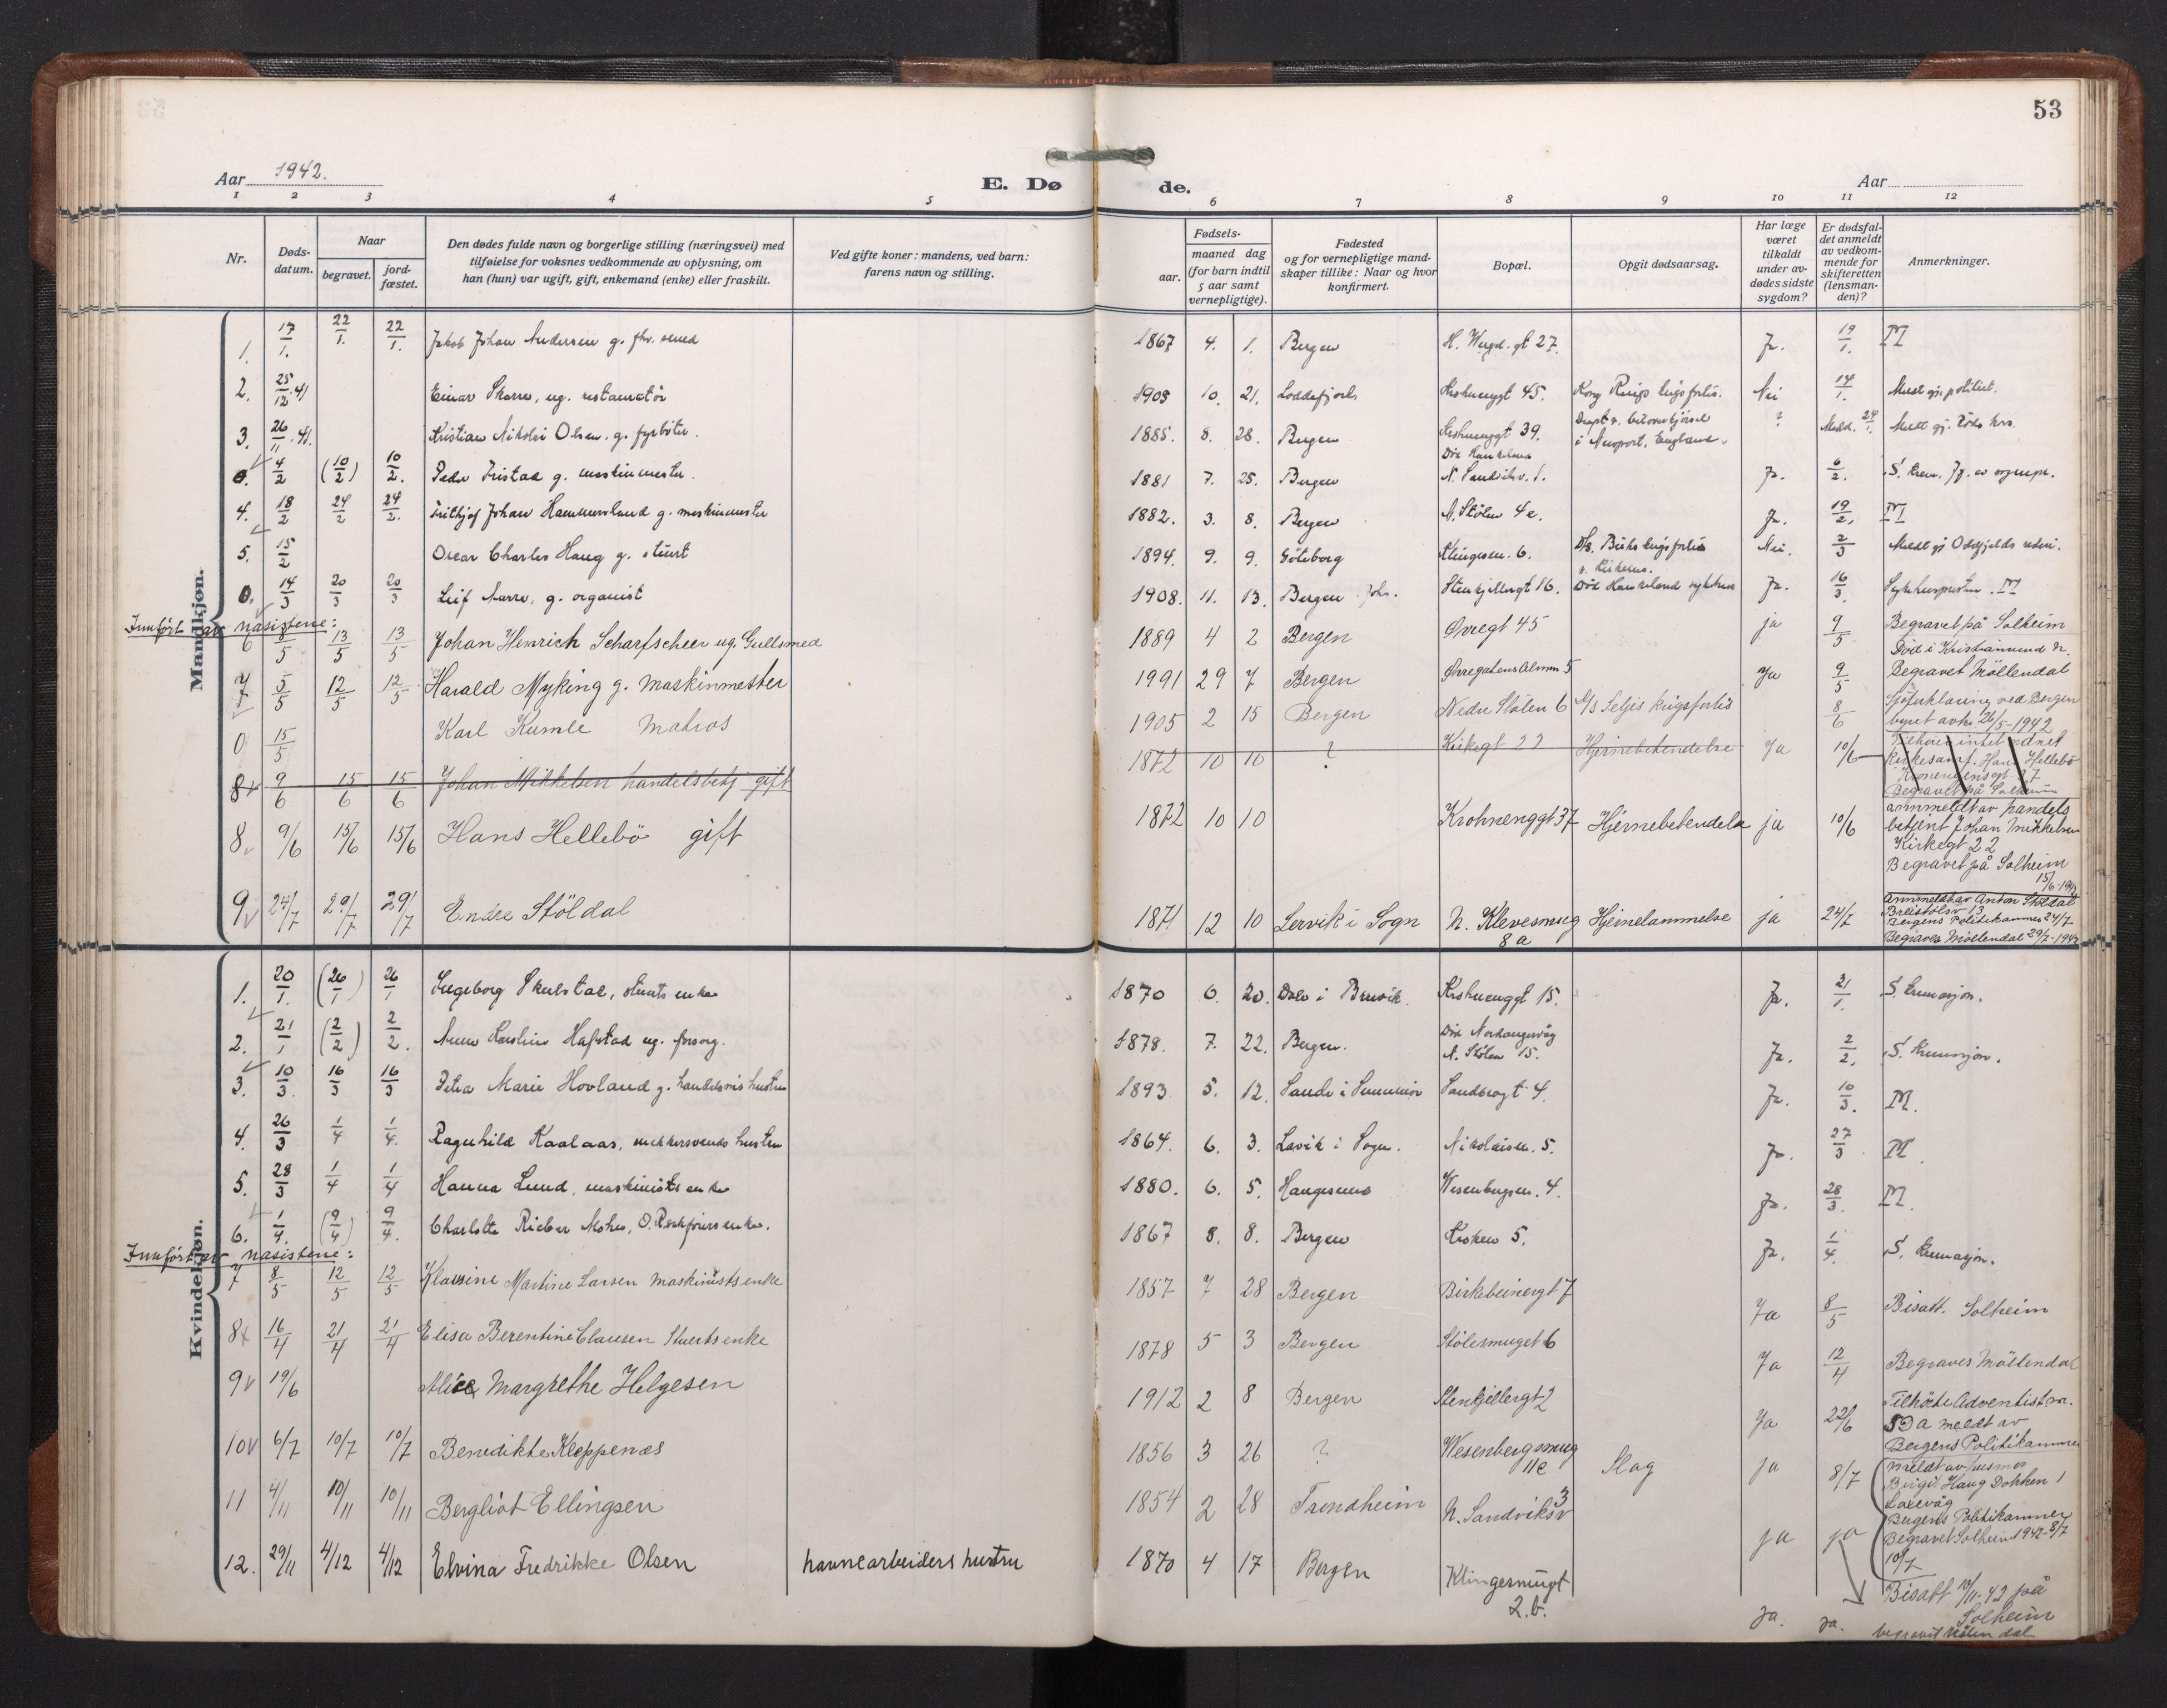 53
Aar 1942.
E. Dø
de.
Aar
1 2 3 4 5 6 7 8 9 10 11 12
Nr.
Døds-
datum.
Naar
begravet.
jord-
fæstet.
Den dødes fulde navn og borgerlige stilling (næringsvei) med
tilføielse for voksnes vedkommende av oplysning, om
han (hun) var ugift, gift, enkemand (enke) eller fraskilt.
Ved gifte koner: mandens, ved barn:
farens navn og stilling.
Fødsels-
aar.
maaned dag
(for barn indtil
5 aar samt
vernepligtige).
Fødested
og for vernepligtige mand-
skaper tillike: Naar og hvor
konfirmert.
Bopæl.
Opgit dødsaarsag.
Har læge
været
tilkaldt
under av-
dødes sidste
sygdom?
Er dødsfal-
det anmeldt
av vedkom-
mende for
skifteretten
(lensman-
den)?
Anmerkninger.
Mandkjøn.
1. 17/1. 22/1. 22/1. Jakob Johan Andersen g. fhv. smed 1867 4. 1. Bergen H. Wergl. gt 27. Ja. 19/1. M
2. 25/12 41 Einar Skarre, ug. restauratør 1905 10. 21. Loddefjord Krohnenggt 45. Nei 14/1. Meldt gj. politiet.
3. 26/11 41. Kristian Nikolai Olsen. g. fyrbøter. 1885. 8. 28. Bergen Krohnenggt 39. i Newport, England. ? Meld. 24/1. Meldt gj. Røde kors.
0. 4/2 (10/2) 10/2. Peder Fristad g. maskinmester. 1881 7. 25. Bergen N. Sandviksv. 1. Ja. 6/2. S. Krem.
4. 18/2 24/2 24/2. Frithjof Johan Hammersland g. maskinmester 1882. 3. 8. Bergen N. Stølen 4e. Ja. 19/2. M
5. 15/2 Oscar Charles Haug g. stuert 1894. 9. 9. Göteborg Klingesm. 6. krigsforlis Nei. 2/3 Meldt gj Odfjelds rederi.
0. 14/3 20/3 20/3 Leif Narre, g. organist 1908. 11. 13. Bergen Joh. Stenkjellergt 16. Død Haukeland sykehus Ja. 16/3. Sykehuspresten. M
Innført av nasistene:
6 8/5 13/5 13/5 Johan Henrich Scharfscheer ug. Gullsmed 1889 4 2 Bergen Øvregt 45 ja 9/5 Begravet på Solheim
Død i Kristiansund N.
7 5/5 12/5 12/5 Harald Myking g. Maskinmester 1991 29 7 Bergen Øvregatens Almen 5 Ja 9/5 Begravet Möllendal
0 15/5 Karl Kumle Matros 1905 2 15 Bergen Nedre Stölen 6 S/S Seljes krigsforlis 8/6 Sjöforklaring ved Bergen
byret avh. 26/5-1942
8 9/6 15/6 15/6 Johan Mikkelsen handelsbetj gift 1872 10 10 ? Kirkegt 22 Hjernebetendelse Ja 10/6 Tilhörer intet adnet
kirkesamf. Hans Hellebö
Kronengensgt 37
Begravet på Solheim
8 9/6 15/6 15/6 Hans Hellebö gift 1872 10 10 Krohnenggt 37 Hjernebetendelse ja 10/6 anmeldt av handels
betjent Johan Mikkelsen
Kirkegt 22
Begravet på Solheim
15/6-1942
9 24/7 29/7 29/7 Endre Stöldal 1871 12 10 Lervik i Sogn N. Klevesmug Hjernelammelse ja 24/7 Anmeldt av Anton Stöldal
8a Breistölsv 13
Bergens Politikammer 24/7
Begraves Möllendal 29/7-1942
Kvindekjøn.
1. 20/1. (26/1) 26/1 Ingeborg Skulstad, stuerts enke 1870 6. 20. Dale i Bruvik. Krohnenggt 15. Ja. 21/1. S. Kremasjon.
2. 21/1 (2/2) 2/2. Anna Karoline Hafstad ug. forsorg. 1878. 7. 22. Bergen. N. Stølen 15. Ja. 2/2. S. Kremasjon.
3. 10/3. 16/3 16/3 Petra Marie Hovland g. handelsmis hustru 1893 5. 12. Sande i Sunnmør Sandbrogt 4. Ja. 10/3. M.
4. 26/3 1/4 1/4. Ragnhild Kaalaas, snekkersvends hustru 1864. 6. 3. Lavik i Sogn. Nikolaism. 5. Ja. 27/3 M.
5. 28/3 1/4 1/4 Hanna Lund, maskinists enke 1880. 6. 5. Haugesund Wesenbergsm. 4. Ja. 28/3. M.
6. 1/4. (9/4) 9/4. Charlotte Rieber Mohn, enke. 1867 8. 8. Bergen Kroken 5. Ja. 1/4. S. Kremasjon.
Innført av nasistene:
7 8/5 12/5 12/5 Klausine Martine Larsen Maskinistsenke 1857 7 28 Bergen Birkebeinergt 7 Ja 8/5 Bisatt. Solheim
8 16/4 21/4 21/4 Elisa Berentine Clausen Stuertsenke 1878 5 3 Bergen Stölesmuget 6 Ja 12/4 Begraves Möllendal
9 19/6 Alice Margrethe Helgesen 1912 2 8 Bergen Stenkjellergt 2 Ja 22/6 Tilhörte Adventistm.
meldt av
Bergens Politikammer
10 6/7 10/7 10/7 Benedikte Kleppenæs 1856 3 26 ? Wesenbergsmug Slag ja 8/7 meldt av
11e Birgit Haug Dokken 1
Laxevåg
Bergens Politikammer
Begravet Solheim 1942 8/7
10/7
11 4/11 10/11 10/11 Bergliot Ellingsen 1854 2 28 Trondheim N. Sandviksv 3 ja ja
Bisatt 10/11-42 på
Solheim
12. 29/11 4/12 4/12 Elvina Fredrikke Olsen havnearbeiders hustru 1870 4 17 Bergen Klingesmugt
2.b. ja. ja. begravet Mölendal